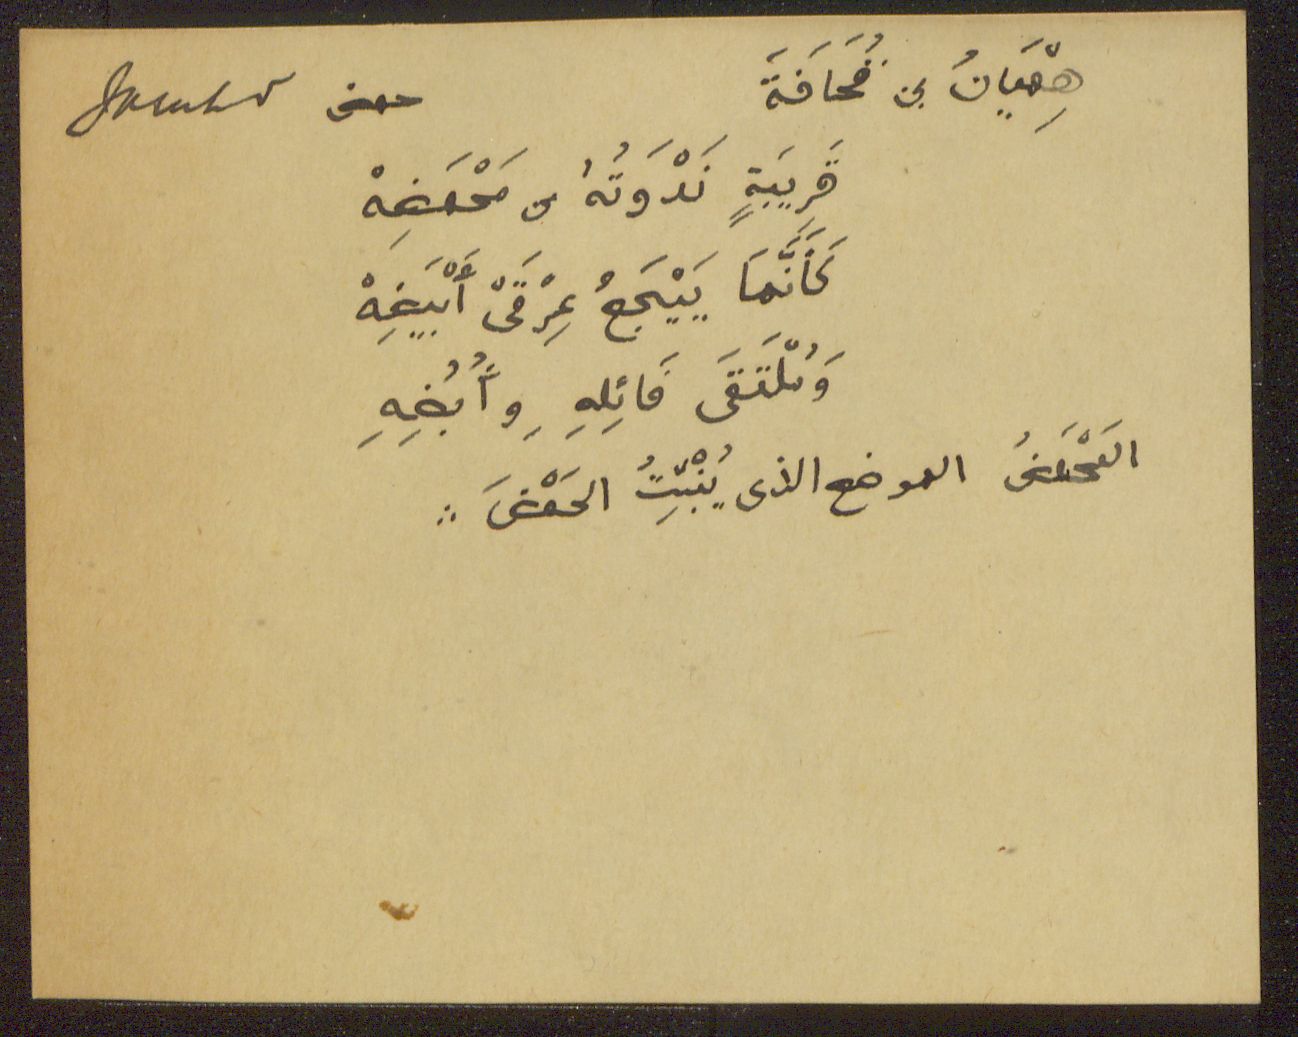 هِمْيَانُ بن قُحَافَةَ حمض
قَرِيبَةٍ نَدْوَتُهُ من مَحْمَضِهْ
كَأَنَّمَا يَيْجَعُ عِرْقَىْ أَبْيَضِهْ
وَمُلْتَقَى فَائِلِهِ وِأُبُضِهِ
المَحْمَضُ الموضع الذى يُنْبِتُ الحَمْضَ